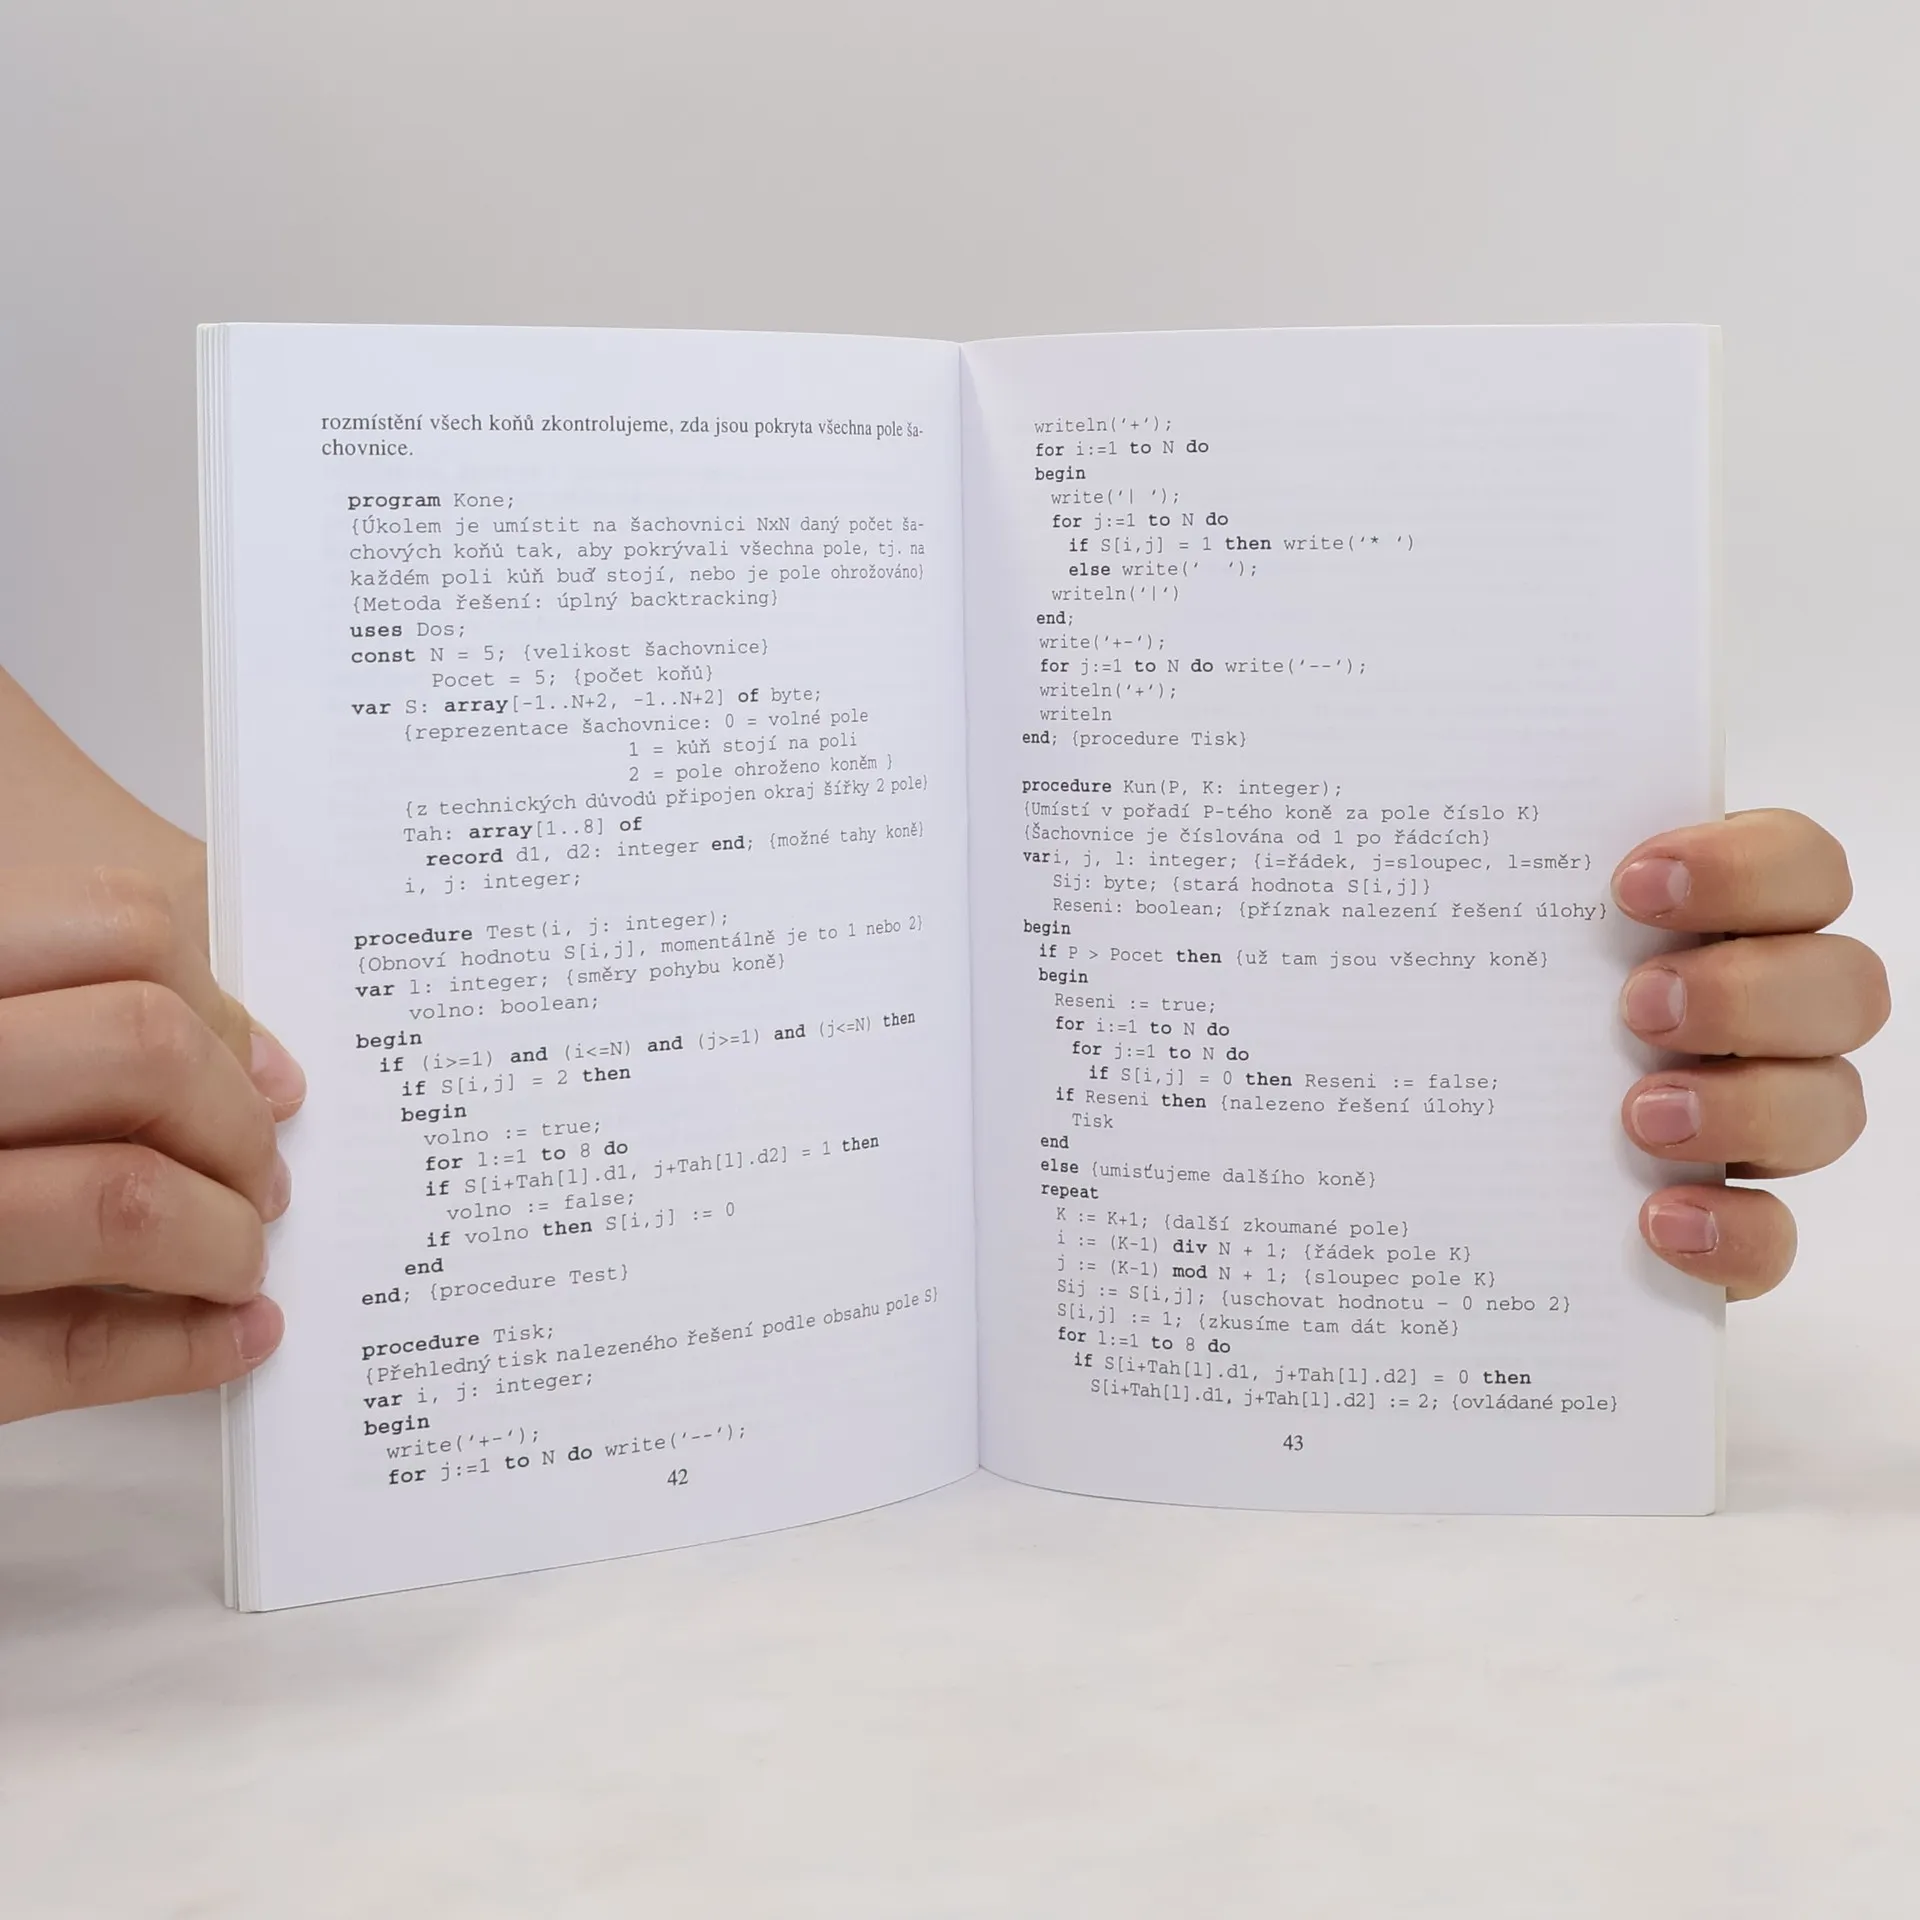 rozmístění všech koňů zkontrolujeme, zda jsou pokryta všechna pole ša-
chovnice.
program Kone;
{Úkolem je umístit na šachovnici NxN daný počet ša-
chových koňů tak, aby pokrývali všechna pole, tj. na
každém poli kůň buď stojí, nebo je pole ohrožováno}
{Metoda řešení: úplný backtracking}
uses Dos;
const N = 5; {velikost šachovnice}
Pocet = 5; {počet koňů}
var S: array[-1..N+2, -1..N+2] of byte;
{reprezentace šachovnice: 0 = volné pole
1 = kůň stojí na poli
2 = pole ohroženo koněm }
{z technických důvodů připojen okraj šířky 2 pole}
Tah: array[1..8] of
record d1, d2: integer end; {možné tahy koně}
i, j: integer;
procedure Test(i, j: integer);
{Obnoví hodnotu S[i,j], momentálně je to 1 nebo 2}
var l: integer; {směry pohybu koně}
volno: boolean;
begin
if (i>=1) and (i<=N) and (j>=1) and (j<=N) then
if S[i,j] = 2 then
begin
volno := true;
for l:=1 to 8 do
if S[i+Tah[l].d1, j+Tah[l].d2] = 1 then
volno := false;
if volno then S[i,j] := 0
end
end; {procedure Test}
procedure Tisk;
{Přehledný tisk nalezeného řešení podle obsahu pole S}
var i, j: integer;
begin
write('+-');
for j:=1 to N do write('--');
42
writeln('+');
for i:=1 to N do
begin
write('| ');
for j:=1 to N do
if S[i,j] = 1 then write('* ')
else write('  ');
writeln('|')
end;
write('+-');
for j:=1 to N do write('--');
writeln('+');
writeln
end; {procedure Tisk}
procedure Kun(P, K: integer);
{Umístí v pořadí P-tého koně za pole číslo K}
{Šachovnice je číslována od 1 po řádcích}
vari, j, l: integer; {i=řádek, j=sloupec, l=směr}
Sij: byte; {stará hodnota S[i,j]}
Reseni: boolean; {příznak nalezení řešení úlohy}
begin
if P > Pocet then {už tam jsou všechny koně}
begin
Reseni := true;
for i:=1 to N do
for j:=1 to N do
if S[i,j] = 0 then Reseni := false;
if Reseni then {nalezeno řešení úlohy}
Tisk
end
else {umisťujeme dalšího koně}
repeat
K := K+1; {další zkoumané pole}
i := (K-1) div N + 1; {řádek pole K}
j := (K-1) mod N + 1; {sloupec pole K}
Sij := S[i,j]; {uschovat hodnotu - 0 nebo 2}
S[i,j] := 1; {zkusíme tam dát koně}
for l:=1 to 8 do
if S[i+Tah[l].d1, j+Tah[l].d2] = 0 then
S[i+Tah[l].d1, j+Tah[l].d2] := 2; {ovládané pole}
43